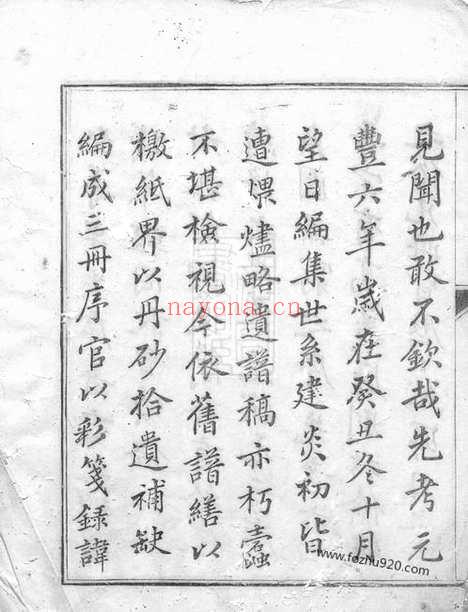 見聞也敢不欽哉先考元
豐六年歲在癸丑冬十月
望日編集世系建炎初皆
遭煨燼略遺譜稿亦朽蠹
不堪檢視今依舊譜繕以
檄紙界以丹砂拾遺補缺
編成三冊序官以彩箋錄諱
nayona.cn
www.fozhu920.com